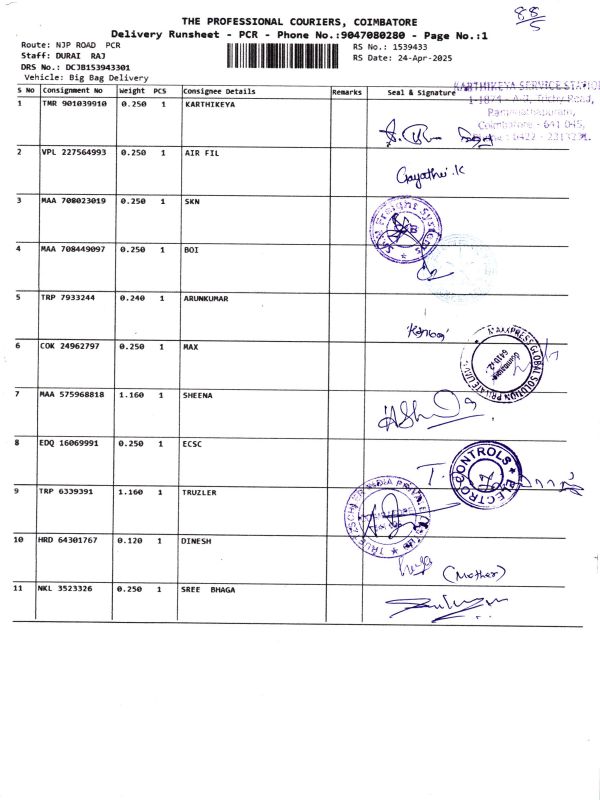 88/5
THE PROFESSIONAL COURIERS, COIMBATORE
Delivery Runsheet - PCR - Phone No.:9047080280 - Page No.:1
Route: NJP ROAD PCR
RS No.: 1539433
Staff: DURAI RAJ
RS Date: 24-Apr-2025
DRS No.: DCJB153943301
Vehicle: Big Bag Delivery
S No Consignment No Weight PCS Consignee Details Remarks Seal & Signature
KARTHIKEYA SERVICE STATION
1 TMR 901039910 0.250 1 KARTHIKEYA
Ramanathapuram,
Coimbatore - 641 045,
2 VPL 227564993 0.250 1 AIR FIL
Gayathri.K
3 MAA 708023019 0.250 1 SKN
4 MAA 708449097 0.250 1 BOI
5 TRP 7933244 0.240 1 ARUNKUMAR
6 COK 24962797 0.250 1 MAX
7 MAA 575968818 1.160 1 SHEENA
8 EDQ 16069991 0.250 1 ECSC
ELECTRO CONTROLS
9 TRP 6339391 1.160 1 TRUZLER
10 HRD 64301767 0.120 1 DINESH
(Mother)
11 NKL 3523326 0.250 1 SREE BHAGA